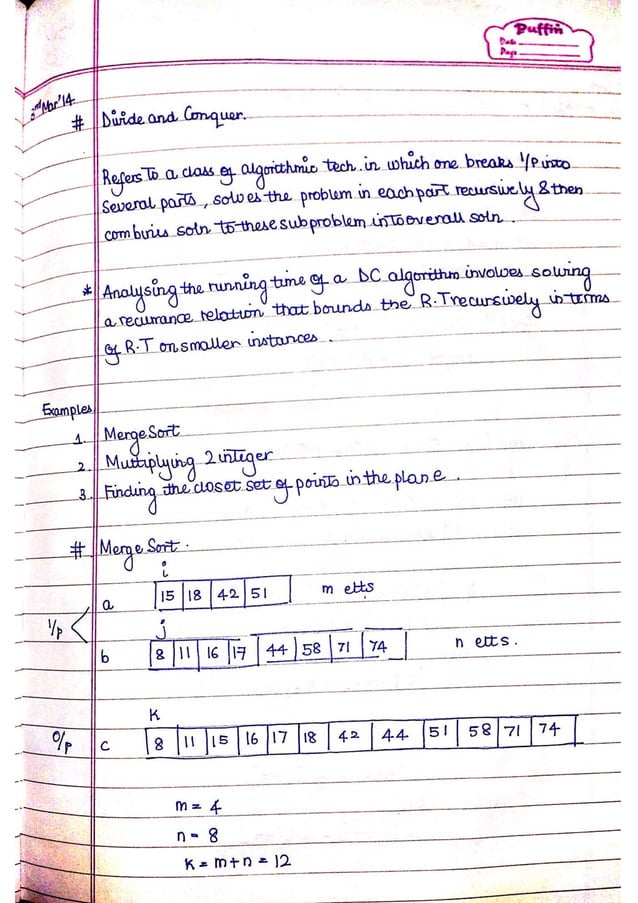 Puffin
Date
Page
3rd Mar'14
# Divide and Conquer.
Refers To a class of algorithmic tech. in which one breaks I/P into
several parts, solves the problem in each part recursively & then
combines soln to these subproblem into overall soln.
* Analysing the running time of a DC algorithm involves solving
a recurrance relation that bounds the R.T recursively in terms
of R.T on smaller instances.
Examples
1. Merge Sort
2. Multiplying 2 integer
3. Finding the closet set of points in the plane.
# Merge Sort.
i
a 15 18 42 51 m elts
I/p
j
b 8 11 16 17 44 58 71 74 n elts.
K
O/p c 8 11 15 16 17 18 42 44 51 58 71 74
m = 4
n = 8
K = m+n = 12